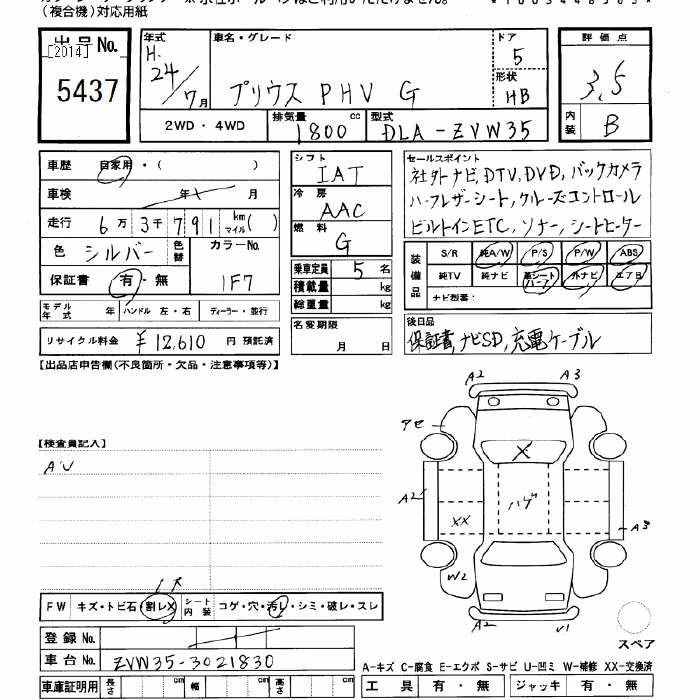 (複合機)対応用紙
出品No.
[2014]
5437
年式 車名・グレード ドア
H.24/7月 プリウス PHV G 5
形状
HB
評価点
3.5
2WD・4WD 排気量 1800 cc 型式 DLA-ZVW35
内装 B
車歴 自家用・( )
車検 年 月
走行 6万3千791 km マイル( )
色 シルバー 色替 カラーNo. 1F7
保証書 有・無
モデル年式 年 ハンドル 左・右 ディーラー・並行
リサイクル料金 ¥12,610 円 預託済
シフト
IAT
冷房
AAC
燃料
G
乗車定員 5 名
積載量 kg
総重量 kg
名変期限
月 日
セールスポイント
社外ナビ,DTV,DVD,バックカメラ
ハーフレザーシート,クルーズコントロール
ビルトインETC,ソナー,シートヒーター
装備品 S/R 純A/W P/S P/W ABS
純TV 純ナビ 革シート ハーフ 外ナビ エアB
ナビ型番:
後日品
保証書,ナビSD,充電ケーブル
【出品店申告欄(不良箇所・欠品・注意事項等)】
【検査員記入】
A'U
A2 A3
アセ
X
A2 ハゲ
XX A3
W2
A2 V1
スペア
FW キズ・トビ石・割レX シート内装 コゲ・穴・汚レ・シミ・破レ・スレ
登録 No.
車台 No. ZVW35-3021830
A-キズ C-腐食 E-エクボ S-サビ U-凹ミ W-補修 XX-交換済
車庫証明用 長さ cm 幅 cm 高さ cm
工具 有・無 ジャッキ 有・無